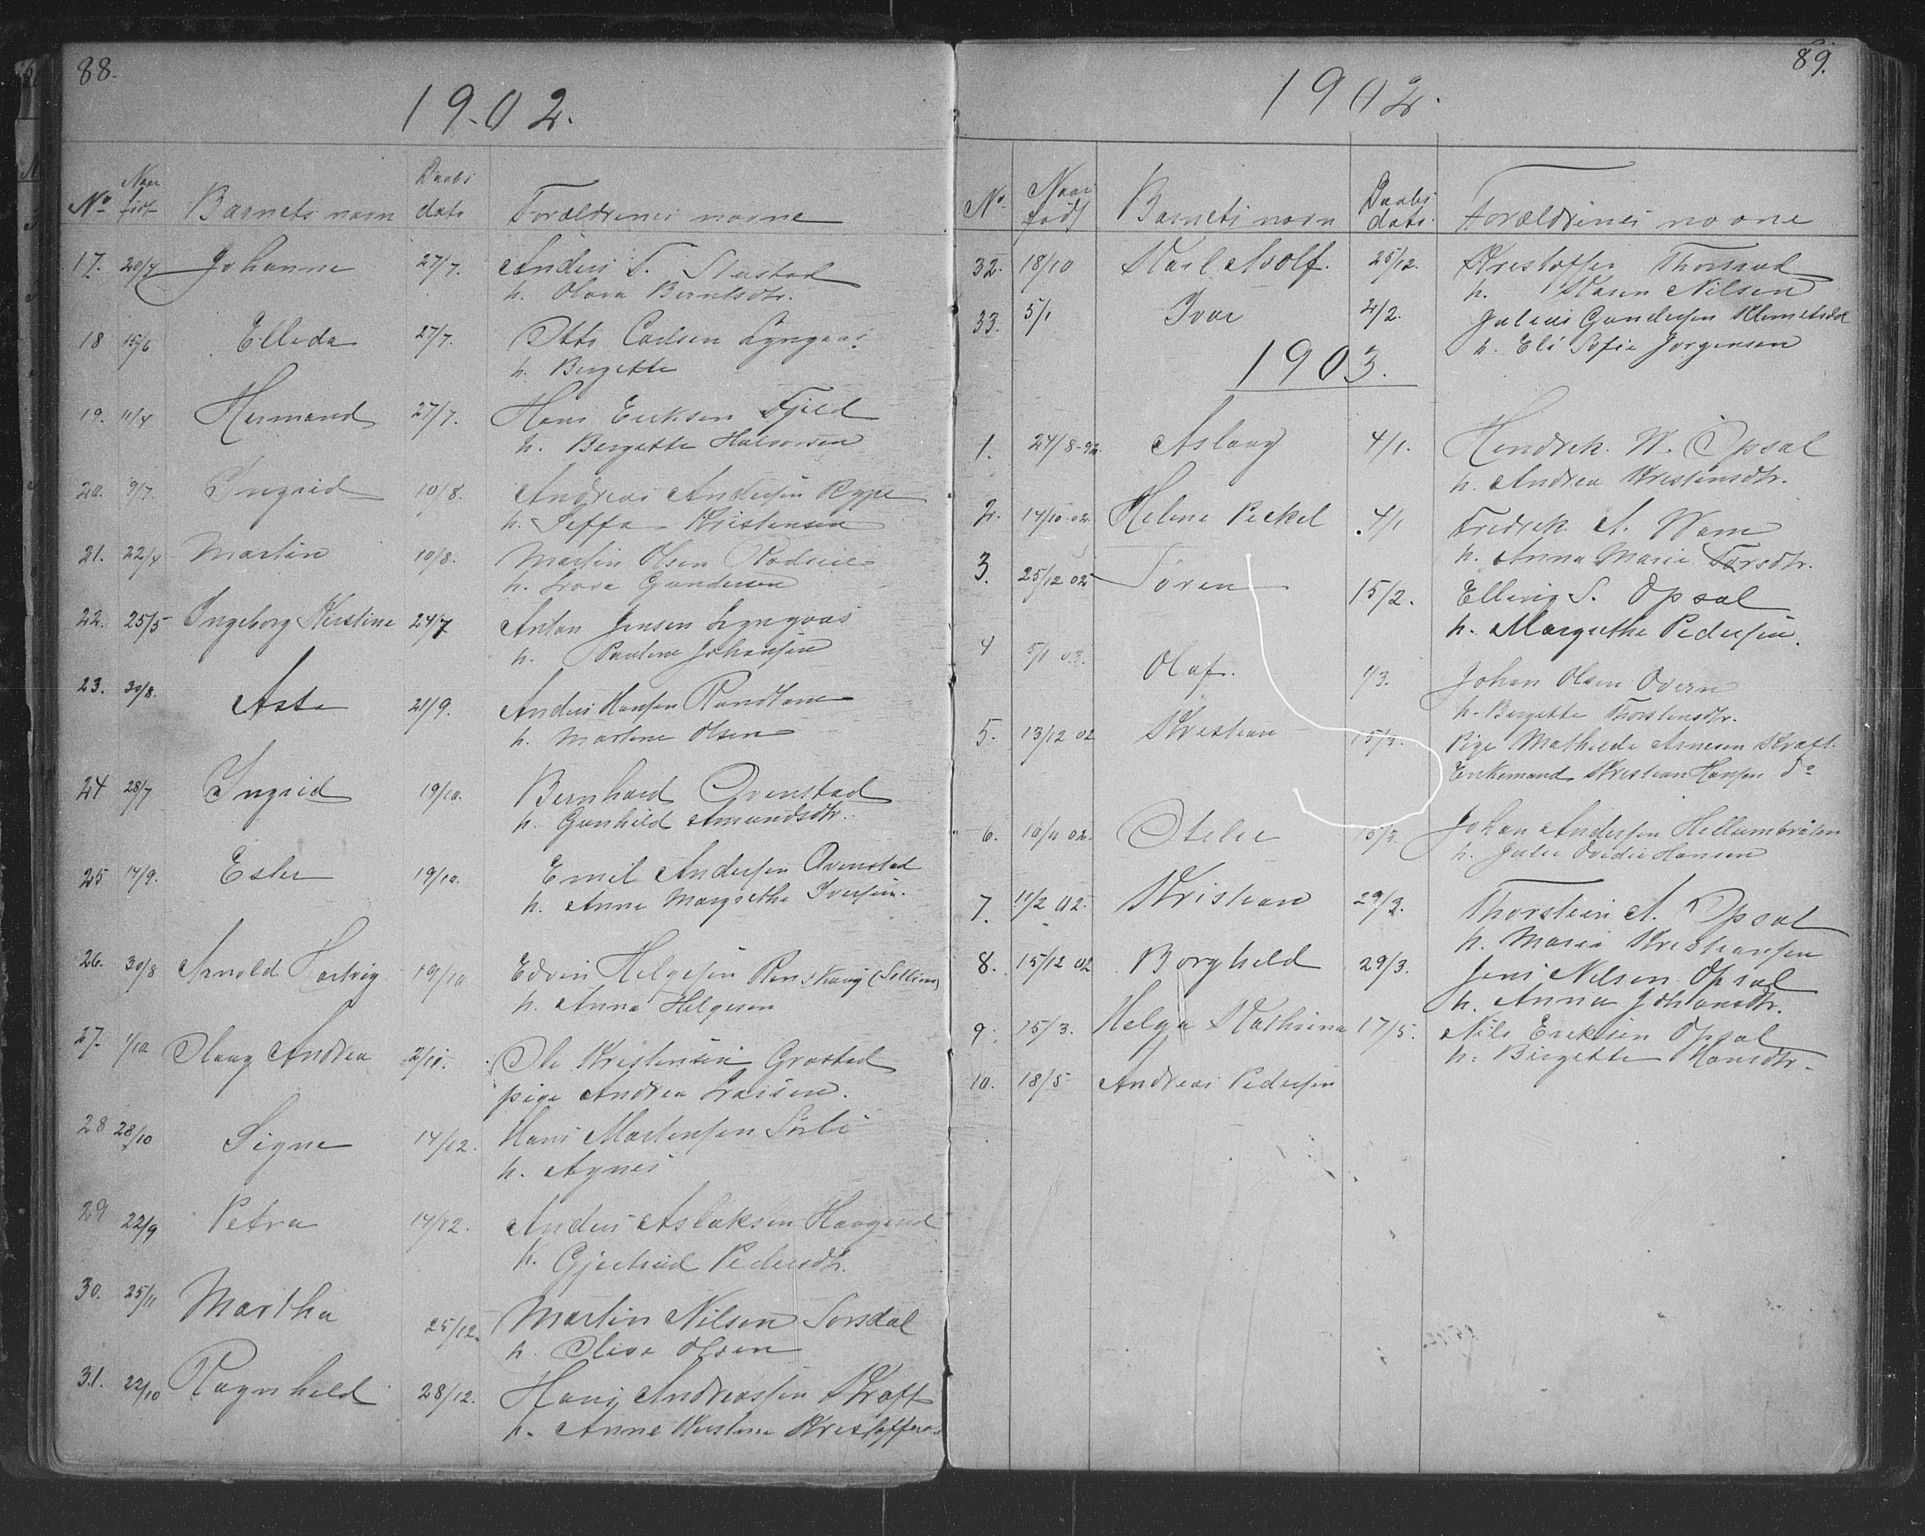 88.
1902.
No Naar født Barnets navn Daabs dato Forældrenes navne
17. 20/4 Johanne 27/7. Anders T.
h. Olava Berntsdtr.
18 15/6 Elleda 27/7. Otto Carlsen Lyngaas
h. Bergette
19. 11/4 Hermand 27/7. Hans Eriksen Fjeld
h. Bergette Halvorsen
20. 9/7. Ingrid 10/8. Andreas Andersen Rype
h. Kristensen
21. 22/4 Martin 10/8. Martin Olsen
h. Gundersen
22. 25/5 Ingeborg Kirstine 24/7 Anton Jensen Lyngaas
h. Pauline Johansen
23. 30/8. Asta 21/9. Anders Hansen Randlone
h. Martene Olsen
24 28/7 Ingrid 19/10. Bernhard Ovenstad
h. Gunhild Amundsdtr.
25 14/9. Ester 19/10. Emil Andersen Ovenstad
h. Anne Margrethe Iversen.
26. 30/8 Arnold Hartvig 19/10 Edvin Helgesen Renskaug (Solli
h. Anna Helgesen
27. 1/10. Olaug Andrea 2/11. Ole Kristensen Gravstad
pige Andrea Larsen.
28 28/10 Signe 14/12. Hans Martensen Sørbi
h. Agnes
29 22/9 Petra 14/12. Anders Aslaksen Haagerud
h. Gjertrud Pedersdtr.
30. 25/11 Martha 25/12. Martin Nilsen Sorsdal
h. Olise Olsen
31. 22/10 Ragnhild 28/12. Hans Andreassen Kraft
h. Anne Kirstine Kristoffers.
89.
1902.
No. Naar født Barnets navn Daabs dato. Forældrenes navne
32. 18/10 Karl Adolf. 25/12. Kristoffer Thorrud
h. Karen Nilsen
33. 5/1 Ivar 2/2. Julius Gundersen Klemetsdal
h. Eli Sofie Jørgensen
1903.
1. 27/8-02. Aslaug 4/1. Hendrek N. Opsal
h. Andrea Kristensdtr.
2. 14/10-02. Helene Peckel 4/1 Fredrek A. Wam
h. Anna Marie Torsdtr.
3. 25/12 02 Søren 15/2. Elling S. Opsal
h. Margrethe Pedersen.
4 5/1 03. Olaf. 1/3. Johan Olsen Overn
h. Bergette Thorstensdtr.
5. 13/12 02 Kristian 15/3. Pige Mathilde Arnesen Kraft.
Enkemand Kristian Hansen do
6. 10/11 02. 15/3. Johan Andersen Hellumbråten
h. Julie Ovedie Hansen
7. 11/2 02. Kristian 29/3. Thorstein A. Opsal
h. Maria Kristiansen
8. 15/12 02 Borghild 29/3. Jens Nilsen Opsal
h. Anna Johansdtr.
9. 15/3. Helga Kathrine 17/5. Nils Eriksen Opsal
h. Bergette Hansdtr.
10. 18/5 Andreas Pedersen